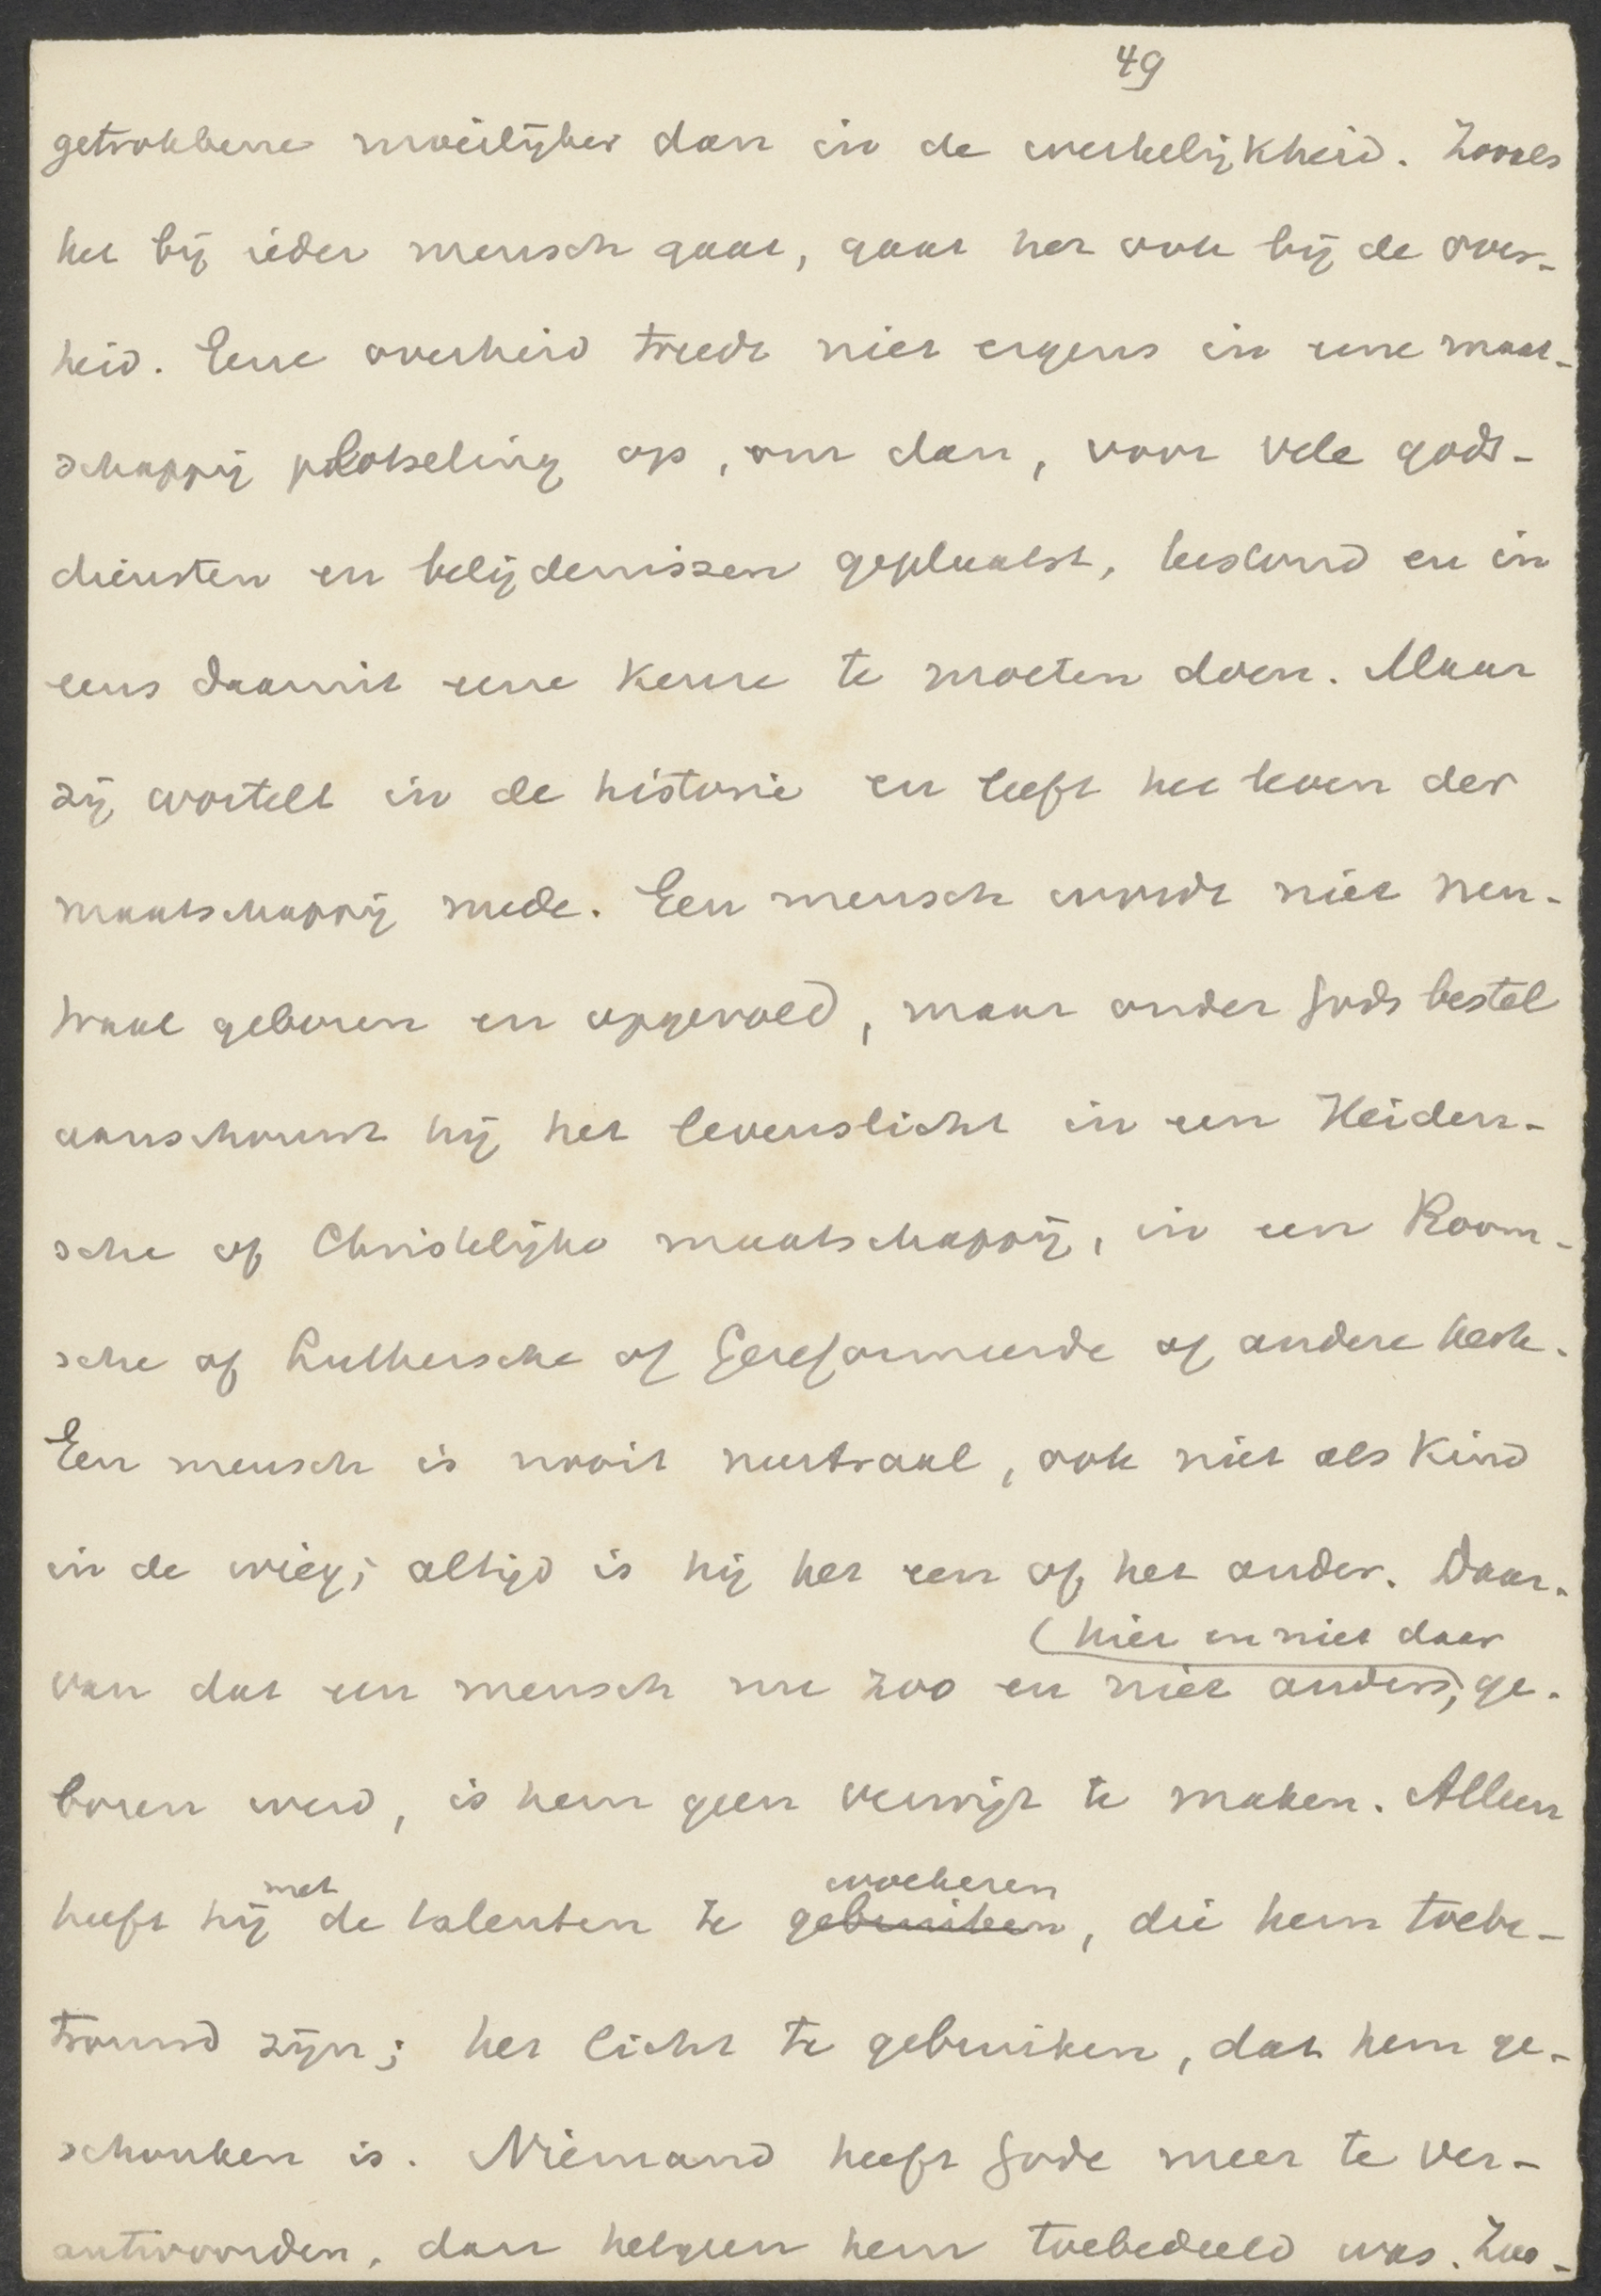 49
getrokkene moeilijker dan in de werkelijkheid. Zooals
het bij ieder mensch gaat, gaat het ook bij de over-
heid. Eene overheid treedt niet ergens in eene maat-
schappij plotseling op, om dan, voor vele gods-
diensten en belijdenissen geplaatst, beslond en in
eens daaruit eene keuze te moeten doen. Maar
zij wortelt in de historie en leeft het leven der
maatschappij mede. Een mensch wordt niet neu-
traal geboren en opgevoed, maar onder Gods bestel
aanschouwt hij het levenslicht in een Heiden-
sche of Christelijke maatschappij, in een Room-
sche of Luthersche of Gereformeerde of andere kerk.
Een mensch is nooit neutraal, ook niet als kind
in de wieg; altijd is hij het een of het ander. Daar-
(hier en niet daar
van dat een mensch nu zoo en niet anders, ge-
boren werd, is hem geen verwijt te maken. Alleen
met woekeren
heeft hij de talenten te gebruiken, die hem toebe-
trouwd zijn; het licht te gebruiken, dat hem ge-
schonken is. Niemand heeft Gode meer te ver-
antwoorden, dan hetgeen hem toebedeeld was. Zoo-